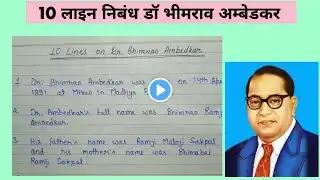 10 लाइन निबंध डॉ भीमराव अम्बेडकर
10 Lines on Dr. Bhimrao Ambedkar
1. Dr. Bhimrao Ambedkar was on 14th
1891 at Mhow in Madhya
2. Dr. Ambedkar's full name was Bhimrao Ramji
Ambedkar.
3. His father's name was Ramji Maloji Sakpal
and his mother's name was Bhimabai
Ramji Sakpal.